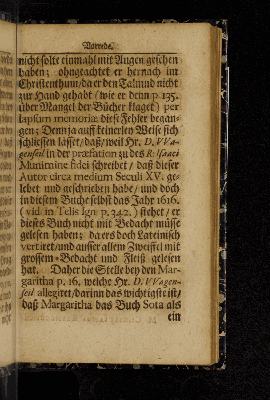 Vorrede.
nicht solte einmahl mit Augen gesehen
haben; ohngeachtet er hernach im
Christenthum / da er den Talmud nicht
zur Hand gehabt / wie er denn p. 135.
über Mangel der Bücher klaget) per
lapsum memoriæ diese Fehler began-
gen; Denn ja auff keinerley Weise sich
schliessen lässet / daß / weil Hr. D. VVa-
genseil in der præfation zu des R. Isaaci
Munimine fidei schreibet / daß dieser
Autor circa medium Seculi XV. ge-
lebet und geschrieben habe / und doch
in diesem Buche selbst das Jahr 1616.
(vid. in Telis Ign p. 342.) stehet / er
dieses Buch nicht mit Bedacht müsse
gelesen haben; da ers doch Lateinisch
vertiret / und ausser allem Zweiffel mit
grossem Bedacht und Fleiß gelesen
hat. Daher die Stelle bey den Mar-
garitha p. 16. welche Hr. D. VVagen-
seil allegiret / darinn das wichtigste ist /
daß Margaritha das Buch Sota als
ein